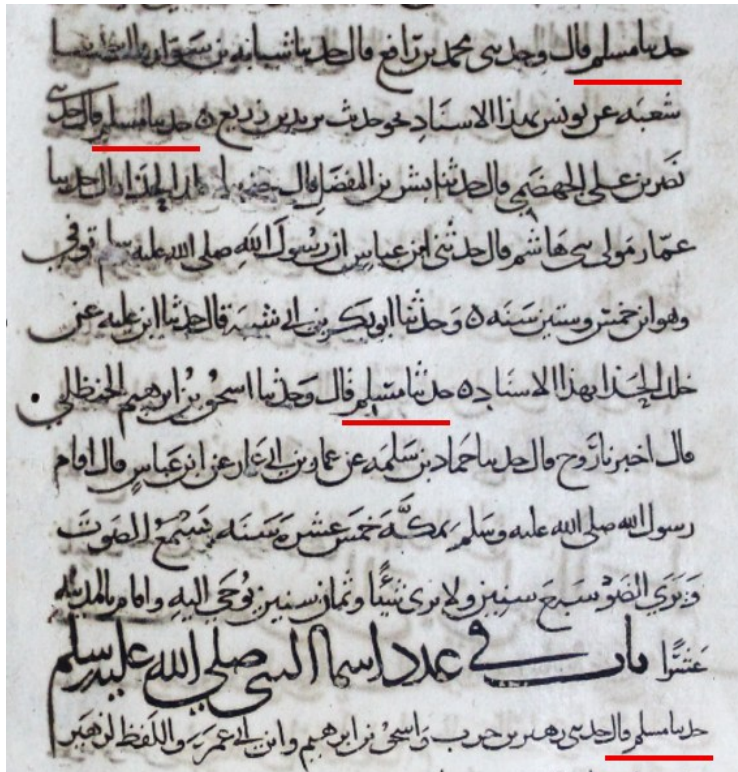 حدثنا مسلم قال وحدثنى محمد بن رافع قال حدثنا شبابه بن سوار قال حدثنا
شعبه عن يونس بهذا الاسناد نحو حديث يزيد بن زريع ه حدثنا مسلم قال حدثنى
نصر بن على الجهضمى قال حدثنا بشر بن المفضل قال حدثنا خالد الحذا قال حدثنا
عمار مولى بنى هاشم قال حدثنى ابن عباس ان رسول الله صلى الله عليه وسلم توفى
وهو ابن خمس وستين سنه ه وحدثنا ابو بكر بن ابى شيبة قال حدثنا ابن عليه عن
خلد الحذا بهذا الاسناد ه حدثنا مسلم قال وحدثنا اسحق بن ابرهيم الحنظلى
قال اخبرنا روح قال حدثنا حماد بن سلمه عن عمار بن ابى عمار عن ابن عباس قال اقام
رسول الله صلى الله عليه وسلم بمكة خمس عشرة سنه يسمع الصوت
ويرى الضو سبع سنين ولا يرى شيئا وثمان سنين يوحى اليه واقام بالمدينه
عشرا باب فى عدد اسما النبى صلى الله عليه وسلم
حدثنا مسلم قال حدثنى زهير بن حرب واسحق بن ابرهيم وابن ابى عمر واللفظ لزهير